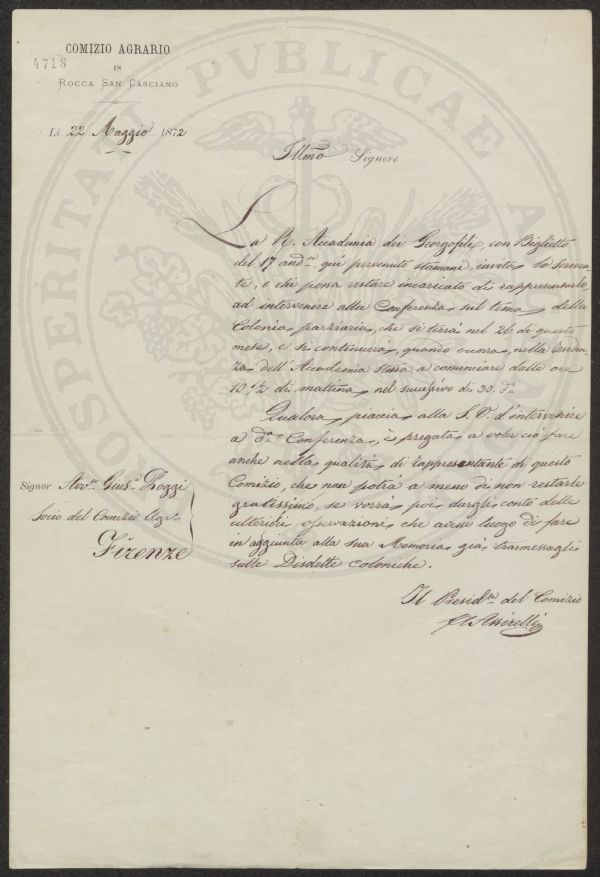 COMIZIO AGRARIO
4718
IN
ROCCA SAN CASCIANO
Li 22 Maggio 1872
Illmo Signore
La R. Accademia dei Georgofili, con Biglietto
del 17 andte qui pervenuto stamani, invita lo scriven-
te, o chi possa restare incaricato di rappresentarlo,
ad intervenire alla Conferenza sul tema della
Colonia parziaria, che si terrà nel 26 di questo
mese, e si continuerà, quando occorra, nella residen-
za dell'Accademia stessa a cominciare dalle ore
10 1/2 di mattina, nel successivo dì 30. do
Qualora piaccia alla S. V. d'intervenire
a da Conferenza, è pregata a voler ciò fare
anche nella qualità di rappresentante di questo
Comizio, che non potrà a meno di non restarle
gratissimo, se vorrà poi dargli conto delle
ulteriori osservazioni che avesse luogo di fare
in aggiunta alla sua Memoria già trasmessagli
sulle Disdette coloniche.
Signor Avvto Giuse Poggi
Socio del Comizio Agro
Firenze
Il Presidte del Comizio
Assirelli
PROSPERITATI PVBLICAE A